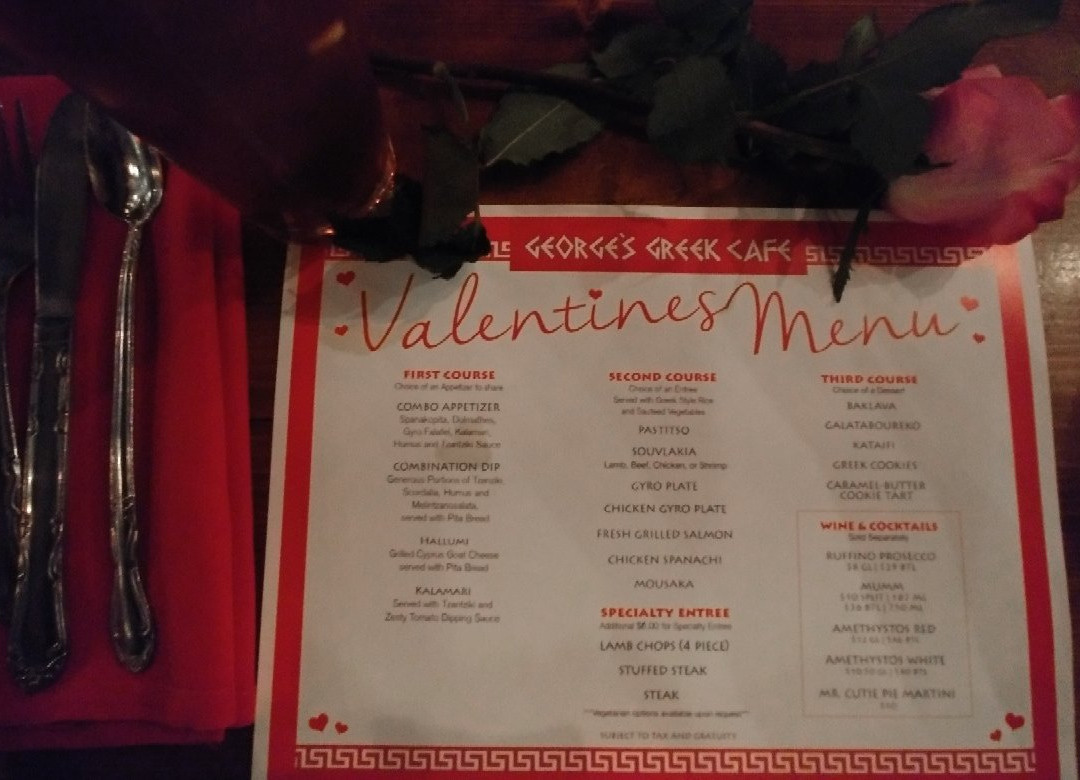 GEORGE'S GREEK CAFE
Valentines Menu
FIRST COURSE
Choice of an Appetizer to share
COMBO APPETIZER
Spanakopita, Dolmathes,
Gyro Falafel, Kalamari,
Humus and Tzantziki Sauce
COMBINATION DIP
Generous Portions of Tzantziki,
Scordalia, Humus and
Melintzanosalata,
served with Pita Bread
HALLUMI
Grilled Cyprus Goat Cheese
served with Pita Bread
KALAMARI
Served with Tzantziki and
Zesty Tomato Dipping Sauce
SECOND COURSE
Choice of an Entree
Served with Greek Style Rice
and Sauteed Vegetables
PASTITSO
SOUVLAKIA
Lamb, Beef, Chicken, or Shrimp
GYRO PLATE
CHICKEN GYRO PLATE
FRESH GRILLED SALMON
CHICKEN SPANACHI
MOUSAKA
SPECIALTY ENTREE
Additional $6.00 for Specialty Entrees
LAMB CHOPS (4 PIECE)
STUFFED STEAK
STEAK
***Vegetarian options available upon request***
SUBJECT TO TAX AND GRATUITY
THIRD COURSE
Choice of a Dessert
BAKLAVA
GALATABOUREKO
KATAIFI
GREEK COOKIES
CARAMEL-BUTTER
COOKIE TART
WINE & COCKTAILS
Sold Separately
RUFFINO PROSECCO
MUMM
AMETHYSTOS RED
AMETHYSTOS WHITE
MR. CUTIE PIE MARTINI